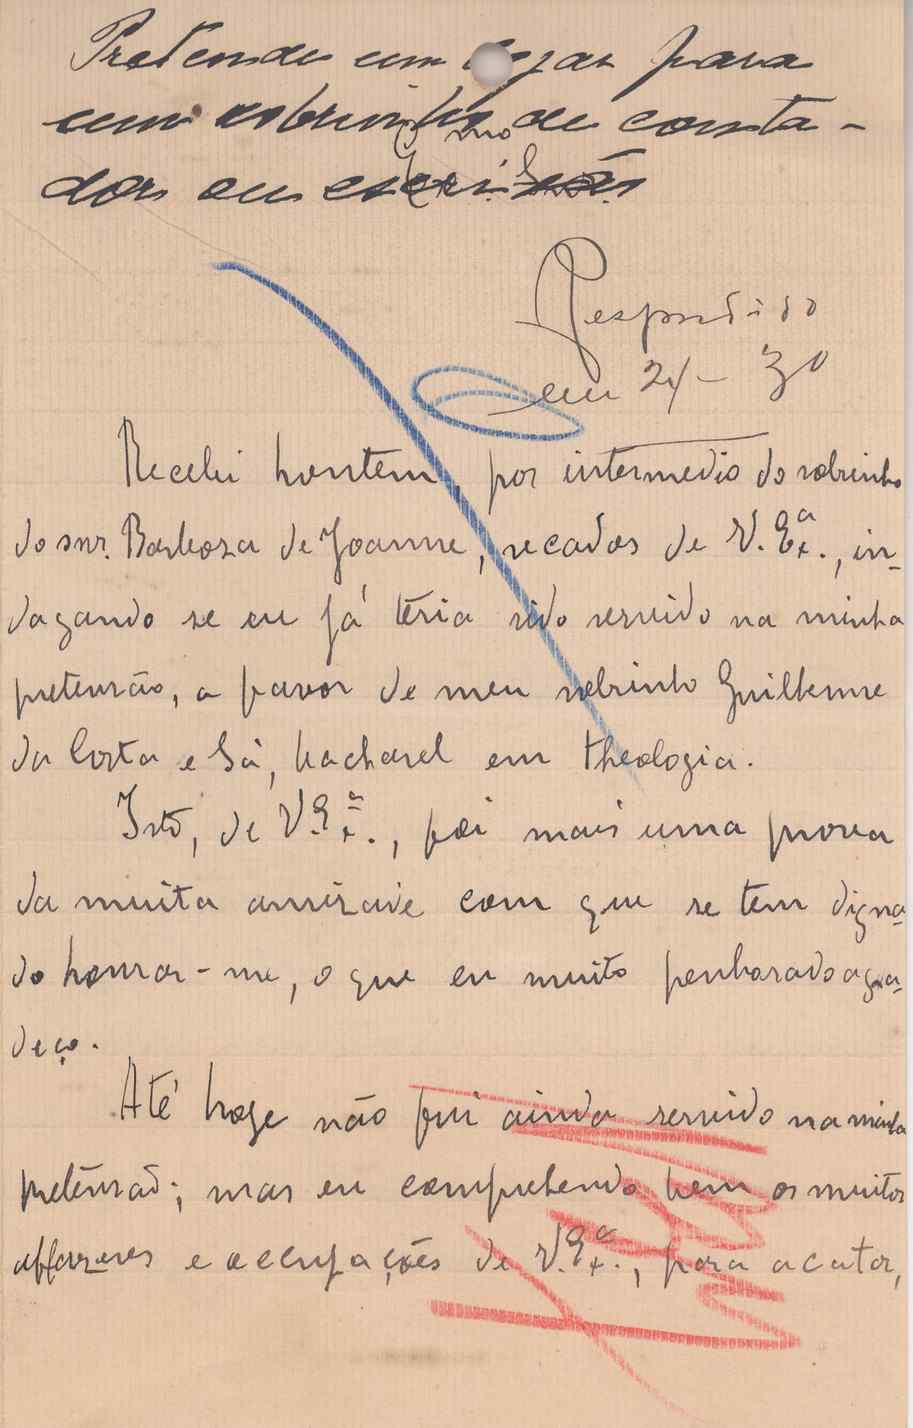 Pretende um logar para
um sobrinho de conta-
dor ou escrivão
Exmo Snr.
Respondido
em 24 - 30
Recebi hontem, por intermedio do sobrinho
do snr. Barboza de Joanne, recados de V. Exª., in-
dagando se eu já teria sido servido na minha
pretensão, a favor de meu sobrinho Guilherme
da Costa e Sá, bacharel em theologia.
Isto, de V. Exª., foi mais uma prova
da muita amizade com que se tem digna-
do honrar-me, o que eu muito penhorado agra-
deço.
Até hoge não fui ainda servido na minha
pretensão; mas eu comprehendo bem os muitos
affazeres e occupações de V. Exª., para acatar,